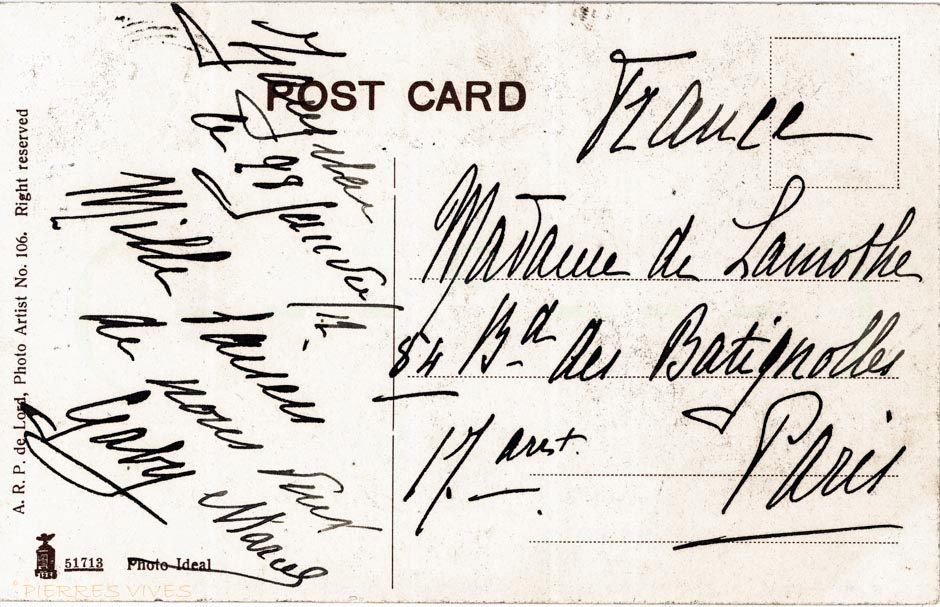 POST CARD
le 29 Janvier
Mille baisers
de nous deux
Gaby
France
Madame de Lamothe
84 Bd des Batignolles
17. arrt.
Paris
A. R. P. de Lord, Photo Artist No. 106. Right reserved
51713 Photo Ideal
PIERRES VIVES